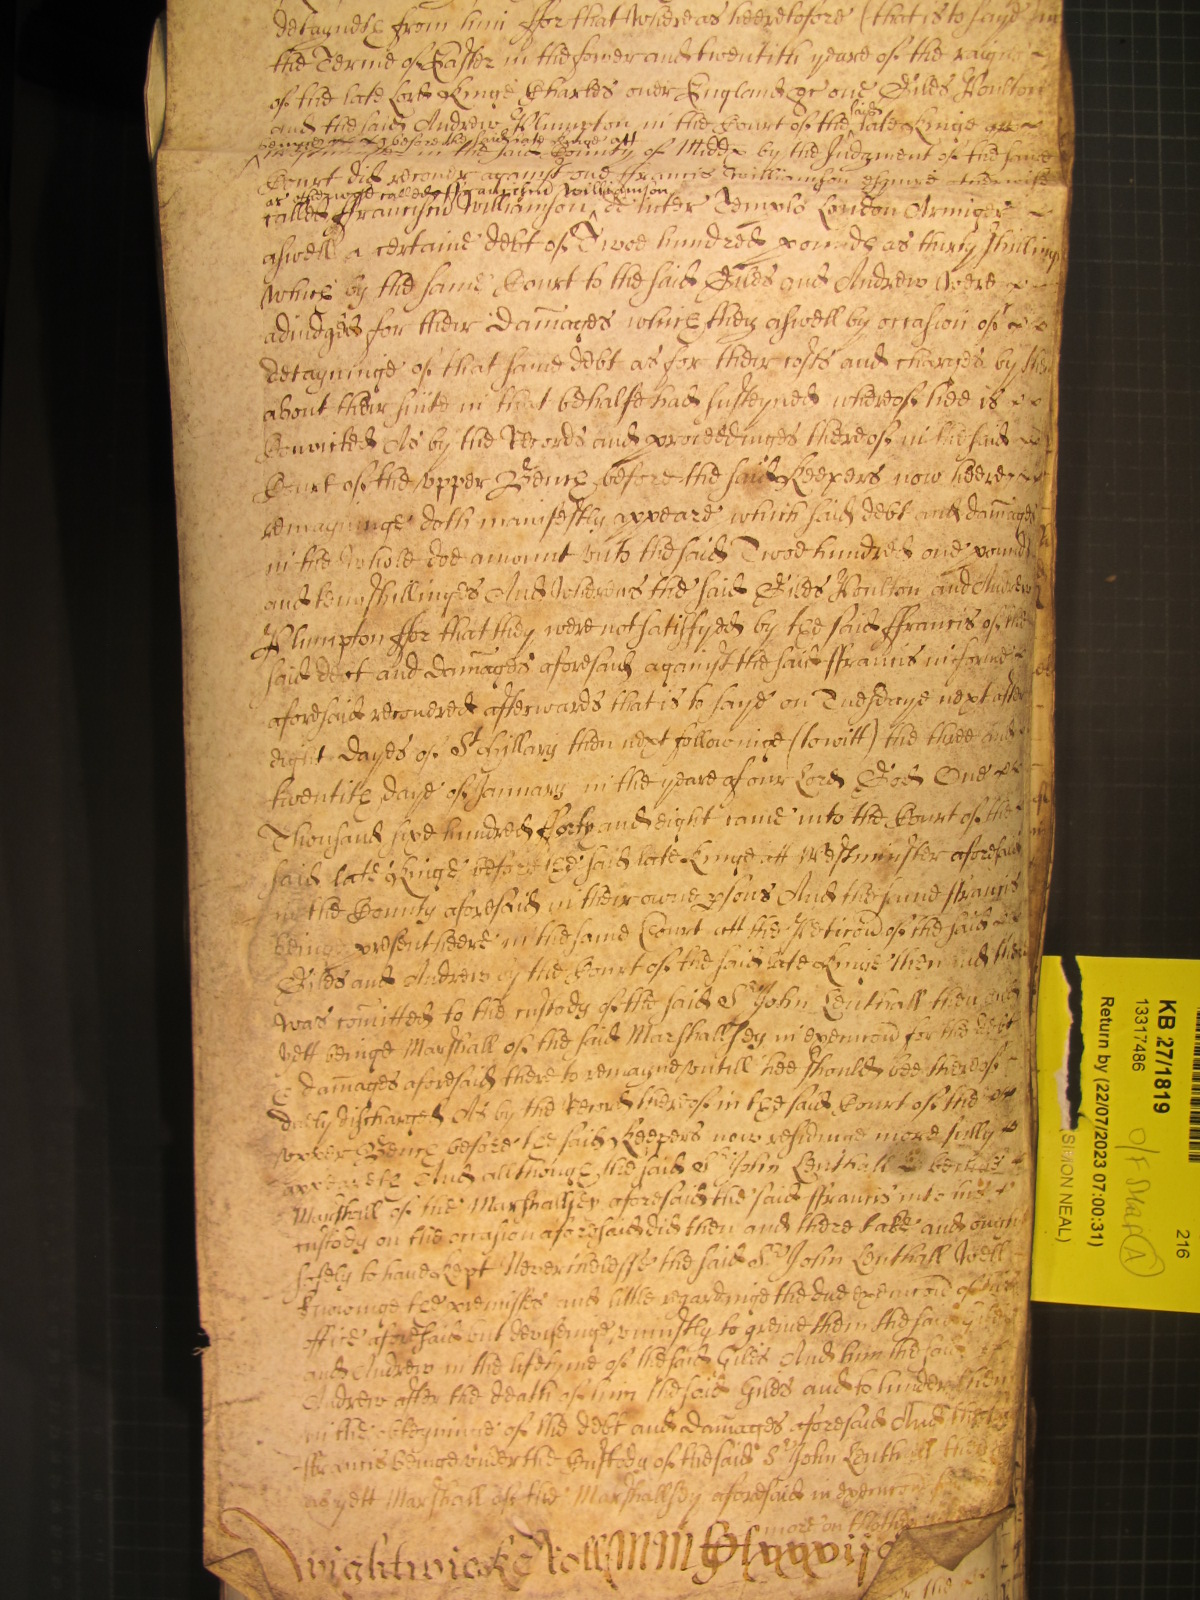 detayneth from him ffor that Whereas heeretofore (that is to saye in
the Terme of Easter in the fower and twentith yeare of the raigne
of the late Lord Kinge Charles over England &c one Giles Poulton
and the said Andrew Plumpton in the Court of the said late Kinge
before the said late Kinge att
in the said County of Midd by the Judgment of the same
Court did recover against one ffrancis Williamson esquire otherwise
or otherwise called ffranciscu Williamson
called ffranciscu Williamson de Inter Templo London Armiger
aswell a certaine debt of Twoe hundred pounds as thirty shillings
which by the same Court to the said Giles and Andrew were
adiudged for their damages which they aswell by occasion of
detayninge of that same debt as for their costs and charges by them
about their suite in that behalfe had susteyned whereof hee is
Convicted As by the Records and proceedinges thereof in the said
Court of the upper Bench before the said Keepers now heere
remayninge doth manifestly appeare which said debt and damages
in the whole doe amount unto the said Twoe hundred one pounds
and tenn shillinges And Whereas the said Giles Poulton and Andrew
Plumpton ffor that they were not satisfyed by the said ffrancis of the
said debt and damages aforesaid against the said ffrancis in forme
aforesaid recovered afterwards that is to saye on Tuesdaye next after
eight dayes of St Hyllary then next followinge (to witt) the three and
twentith daye of January in the yeare of our Lord God One
Thousand sixe hundred fforty and eight came into the Court of the
said late Kinge before the said late Kinge att Westminster aforesaid
in the County aforesaid in their owne psons And the same ffrancis
beinge present heere in the same Court att the Peticon of the said
Giles and Andrew by the Court of the said late Kinge then and there
was comitted to the custody of the said Sr John Lenthall then and
yett beinge Marshall of the said Marshallsey in execucon for the debt
& damages aforesaid there to remayne untill hee should bee thereof
duely discharged As by the Record thereof in the said Court of the
upper Bench before the said Keepers now residinge more fully
appeareth And allthough the said Sr John Lenthall
Marshall of the Marshallsey aforesaid the said ffrancis into his
custody on the occasion aforesaid did then and there take and ought
safely to have kept Neverthelesse the said Sr John Lenthall Well
knowinge the premisses and little regardinge the due execucon of his
office aforesaid but devisinge uniustly to greive them the said Giles
and Andrew in the lifetime of the said Giles And him the said
Andrew after the death of him the said Giles and to hinder them
in the obteyninge of the debt and damages aforesaid And the said
ffrancis beinge under the Custody of the said Sr John Lenthall then
as yett Marshall of the Marshallsey aforesaid in execucon
more on thother
Wightwicke Roll
KB 27/1819
13317486
216
Return by (22/07/2023 07:00:31)
SIMON NEAL)